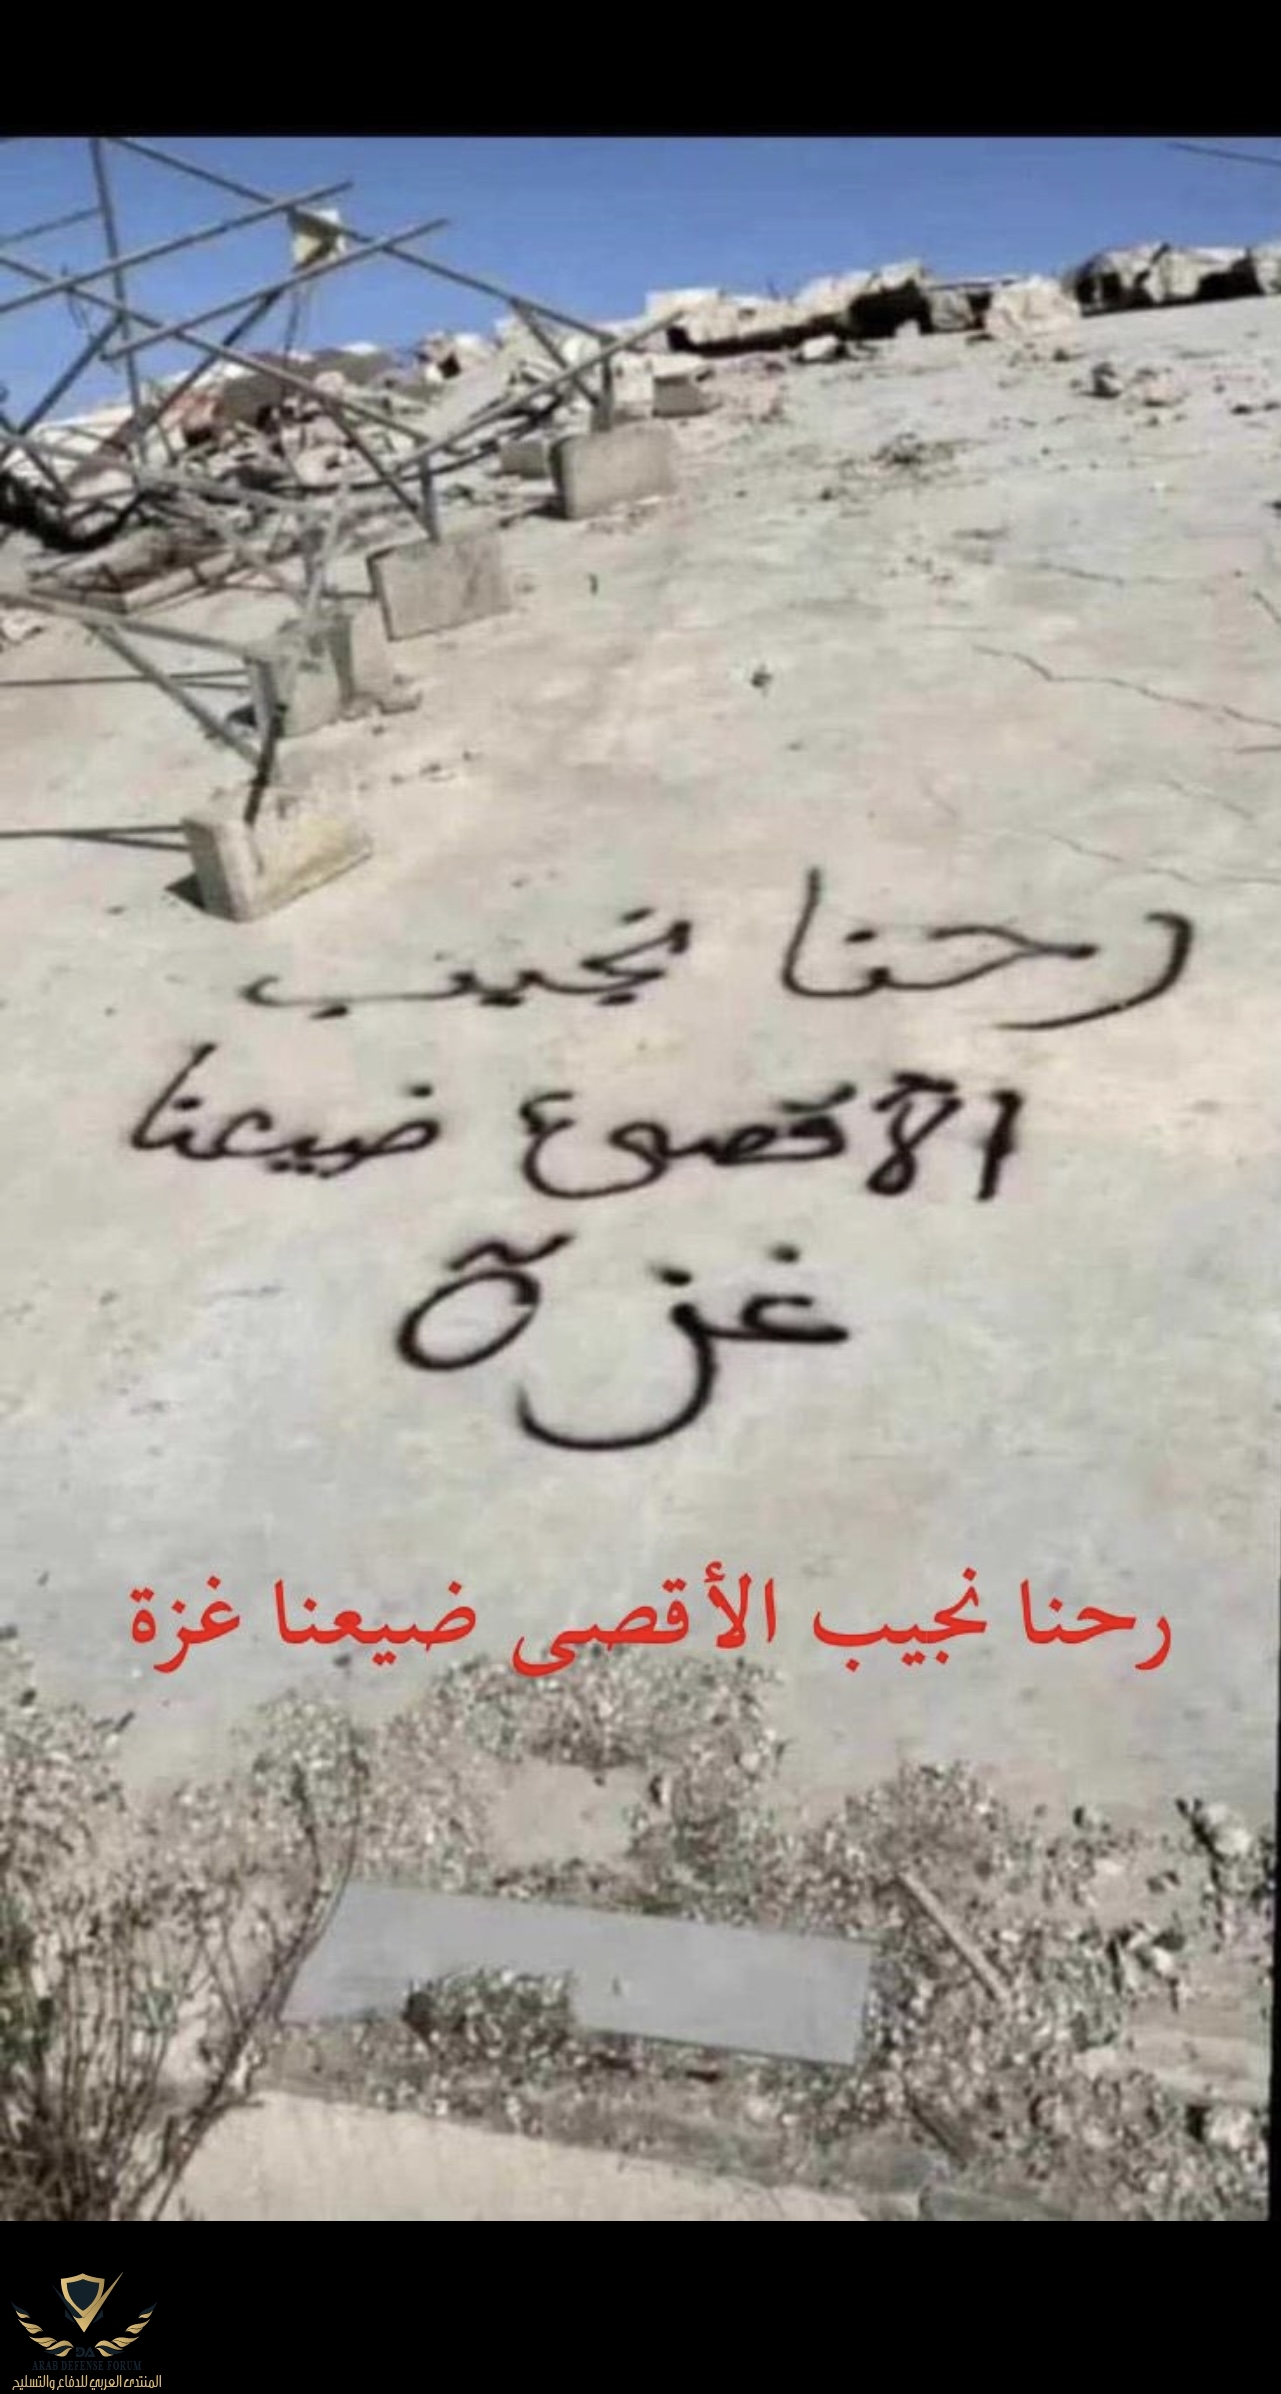 رحنا نجيب
الأقصى ضيعنا
غزة
رحنا نجيب الأقصى ضيعنا غزة
ARAB DEFENSE FORUM
المنتدى العربي للدفاع والتسليح